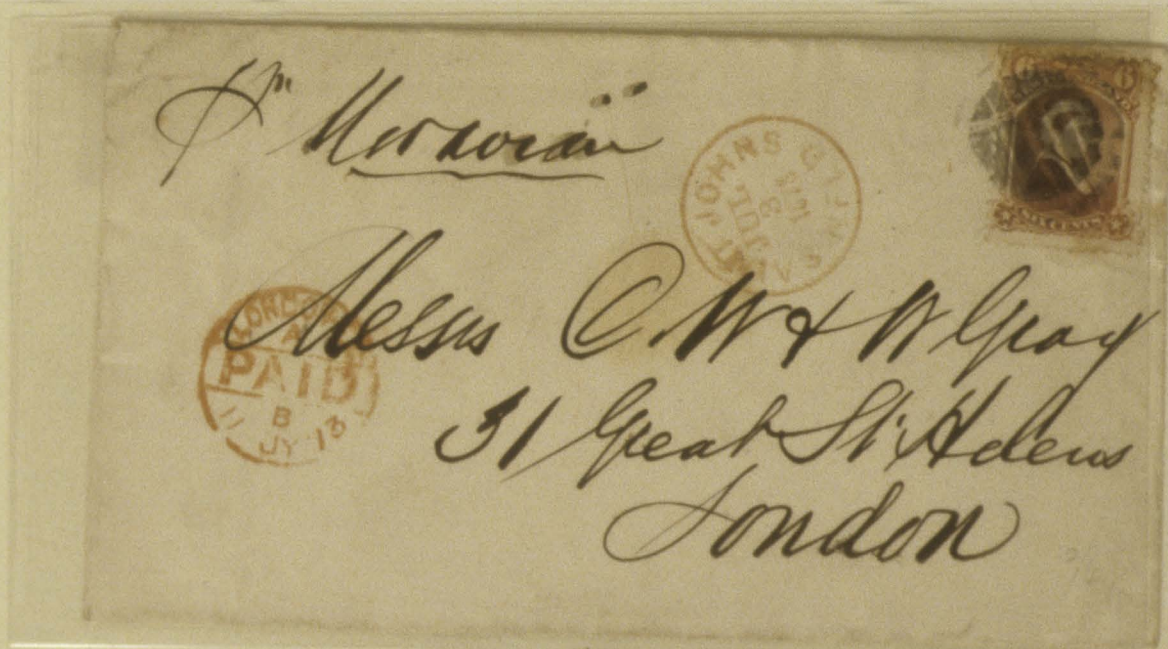 6 6
pr Moravian
SAINT JOHNS
JUL
3
LONDON
PAID
B
JY 13
Messrs C. W & W Gray
31 Great St. Helens
London